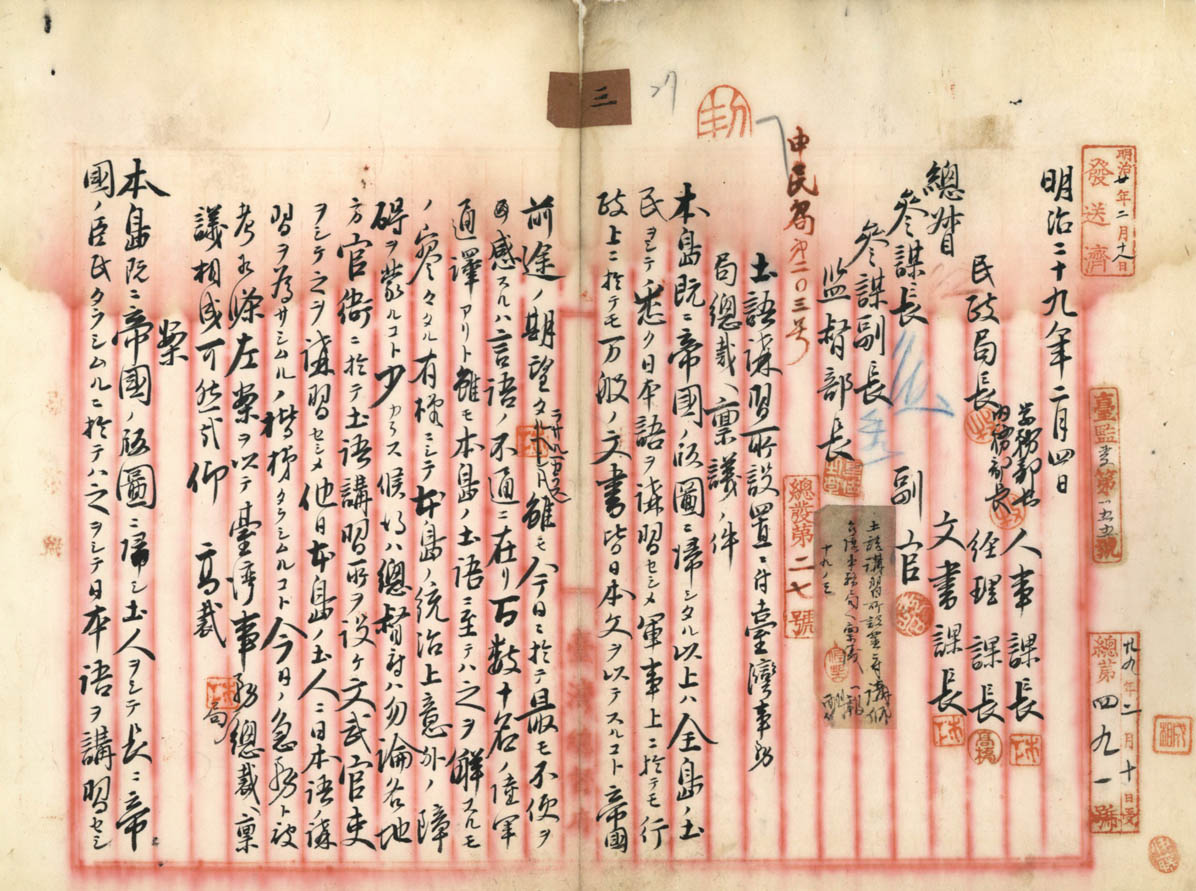 明治廿年二月十八日
發送濟
臺監書第一五五號
廿九年二月十日受
總第四九一號
明治二十九年二月四日
民政局長
學務部長
内務部長
人事課長
經理課長
文書課長
總督
副官
參謀長
參謀副長
監督部長
總發第二七號
土語講習所設置ニ付
十九ノ三
三
申民局第二〇三号
土語講習所設置ニ付臺灣事務
局總裁ヘ稟議ノ件
本島既ニ帝國ノ版圖ニ帰シタル以上ハ全島ノ土
民ヲシテ悉ク日本語ヲ講習セシメ軍事上ニ於テモ行
政上ニ於テモ万般ノ文書皆日本文ヲ以テスルコト帝國
前途ノ期望
雖モ今日ニ於テ最モ不便ヲ
感スルハ言語ノ不通ニ在リ百数十名ノ陸軍
通譯アリト雖モ本島ノ土語ニ至テハ之ヲ解スルモ
ノ寥々タル有様ニシテ本島ノ統治上意外ノ障
碍ヲ蒙ルコト少カラス候ヘハ總督府ハ勿論各地
方官衙ニ於テ土語講習所ヲ設ケ文武官吏
ヲシテ之ヲ講習セシメ他日本島ノ土人ニ日本語ノ講
習ヲ為サシムルノ楷梯タラシムルコト今日ノ急務ト被
考候條左案ヲ以テ臺灣事務總裁ヘ稟
議相成可然哉仰高裁
案
本島既ニ帝國ノ版圖ニ帰シ土人ヲシテ長ニ帝
國ノ臣民タラシムルニ於テハ之ヲシテ日本語ヲ講習セシ